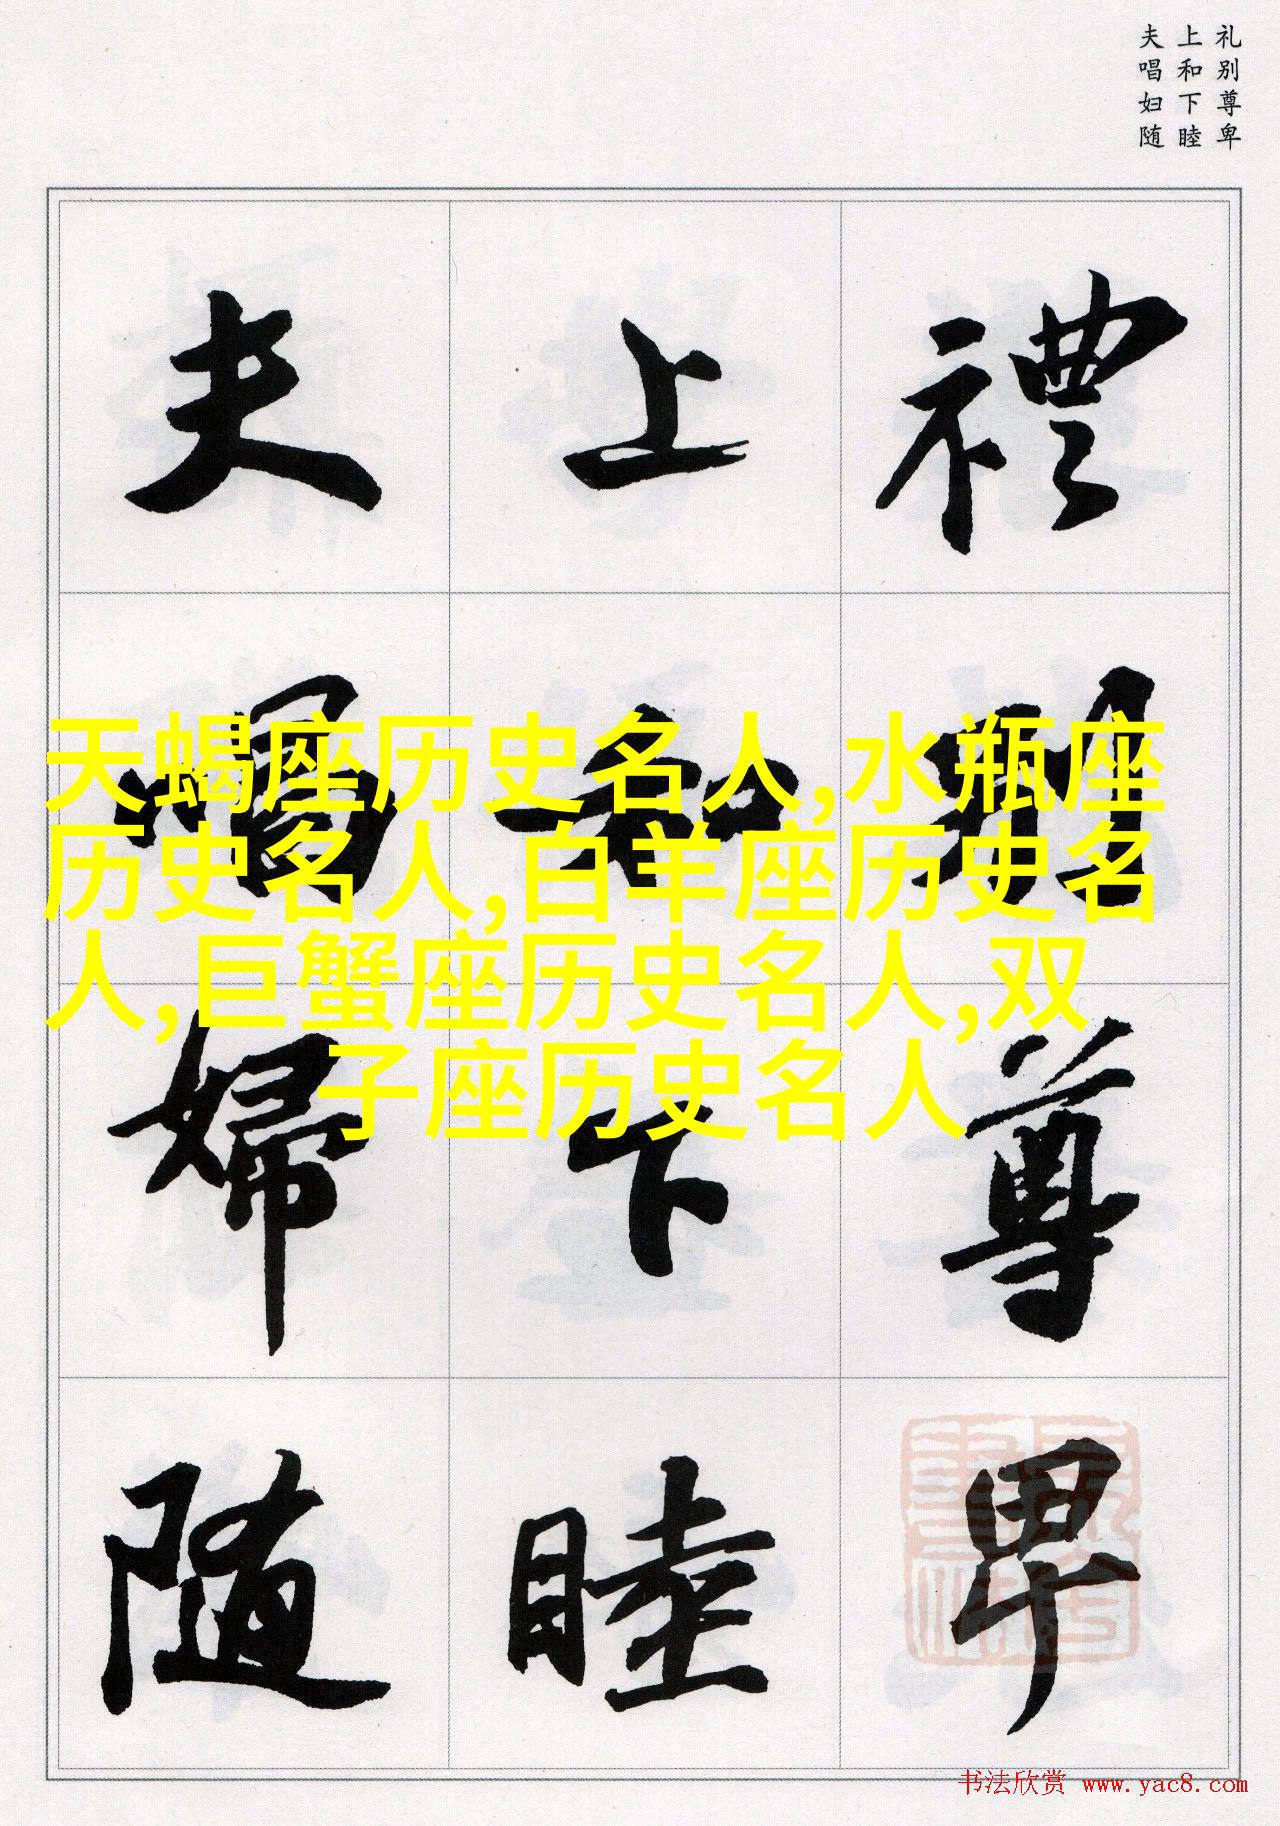 礼别尊卑
上和下睦
夫唱妇随
禮別尊卑
上和下睦
夫唱婦随
天蝎座历史名人,水瓶座
历史名人,白羊座历史名
人,巨蟹座历史名人,双
子座历史名人
书法欣赏 www.yac8.com